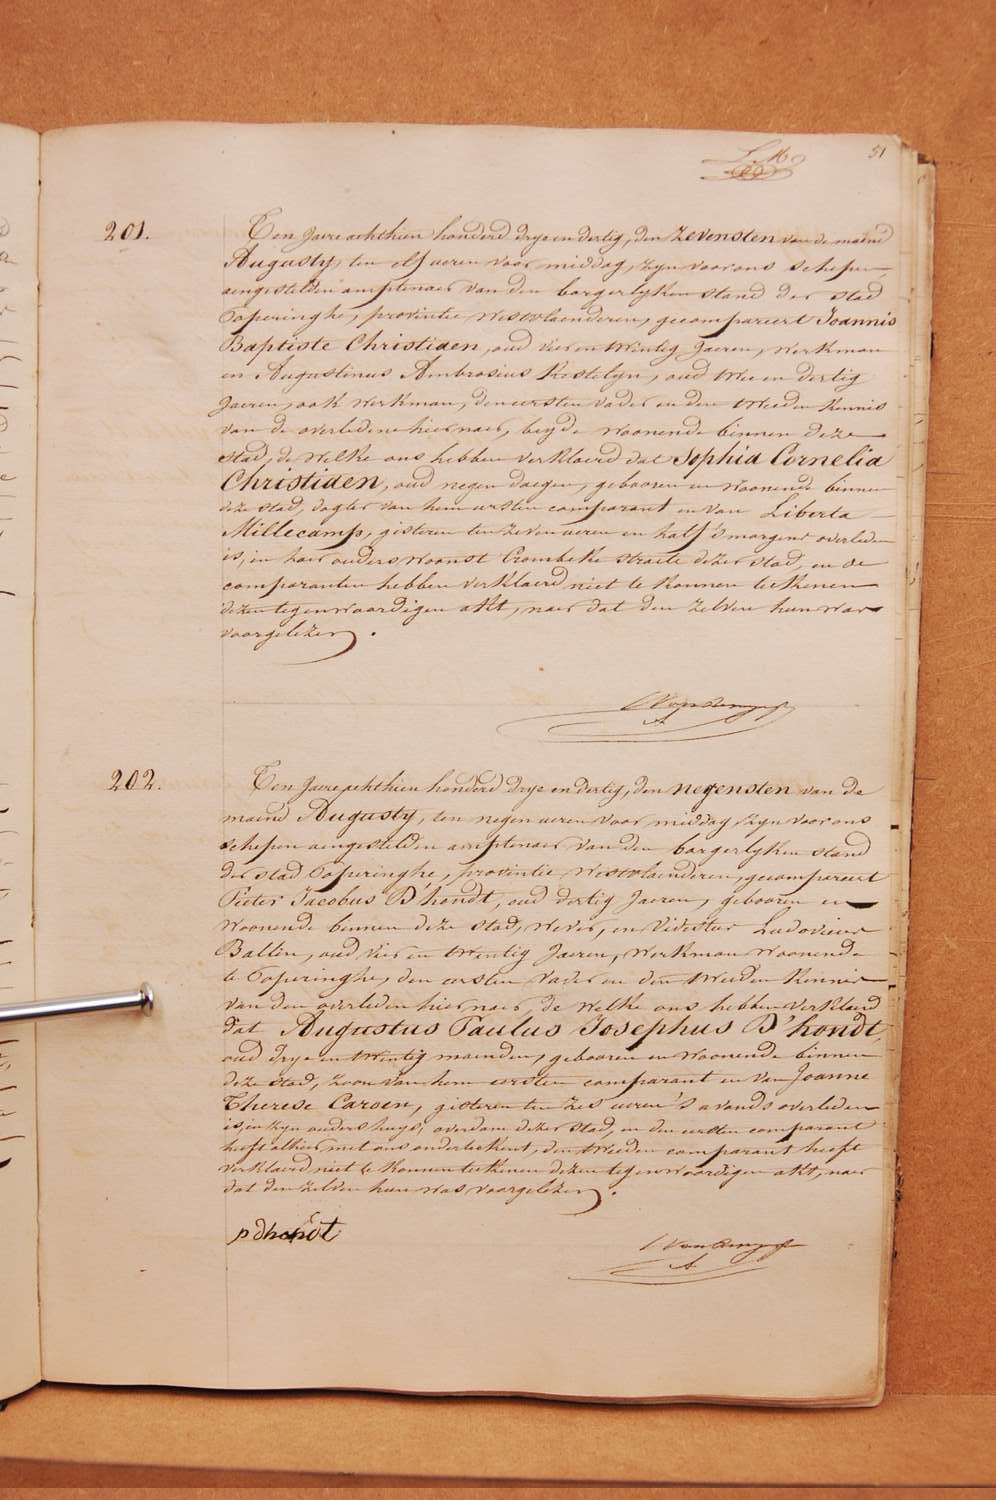 51
201.
Ten Jaere achthien honderd drye en dertig, den zevensten van de maend
Augusty, ten elf ueren voor middag, zyn voor ons schepen
aengestelden amptenaer van den borgerlyken stand der stad
Poperinghe, provintie Westvlaenderen, gecompareert Joannis
Baptiste Christiaen, oud vier en twintig Jaeren, werkman
en Augustinus Ambrosius Kestelyn, oud twee en dertig
Jaeren, ook werkman, den eersten vader en den tweeden kennis
van de overledene hier naer, beyde woonende binnen deze
stad, de welke ons hebben verklaerd dat Sophia Cornelia
Christiaen, oud negen daegen, gebooren en woonende binnen
deze stad, dogter van hem eersten comparant en van Liberta
Millecamp, gisteren ten zeven ueren en half 's morgens overleden
is, in haer ouders woonst Crombeke straete dezer stad, en de
comparanten hebben verklaerd niet te konnen teekenen
dezen tegenwoordigen akt, naer dat den zelven hun was
voorgelezen.
202.
Ten Jaere achthien honderd drye en dertig, den negensten van de
maend Augusty, ten negen ueren voor middag, zyn voor ons
schepen aengestelden amptenaer van den borgerlyken stand
der stad Poperinghe, provintie Westvlaenderen, gecompareert
Pieter Jacobus D'hondt, oud dertig Jaeren, gebooren en
woonende binnen deze stad, wever, en Ludovicus
Ballin, oud vier en twintig Jaeren, werkman woonende
te Poperinghe, den eersten vader en den tweeden kennis
van den overleden hier naer, de welke ons hebben verklaerd
dat Augustus Paulus Josephus D'hondt,
oud drye en twintig maenden, gebooren en woonende binnen
deze stad, zoon van hem eersten comparant en van Joanne
Therese Caroen, gisteren ten zes ueren 's avonds overleden
is, in zyn ouders huys, overdam dezer stad, en den eersten comparant
heeft alhier met ons onderteekent, den tweeden comparant heeft
verklaerd niet te konnen teekenen dezen tegenwoordigen akt, naer
dat den zelven hun was voorgelezen.
p dhondt